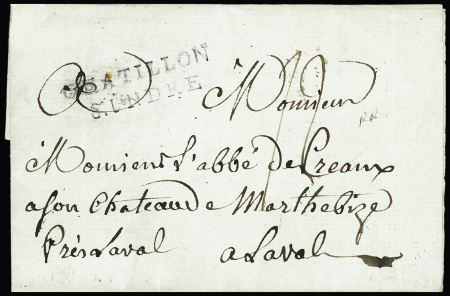 CHATILLON
S. INDRE
A Monsieur
Monsieur l'abbé de Preaux
a son Chateau de Marthebize
Près Laval a Laval
RR